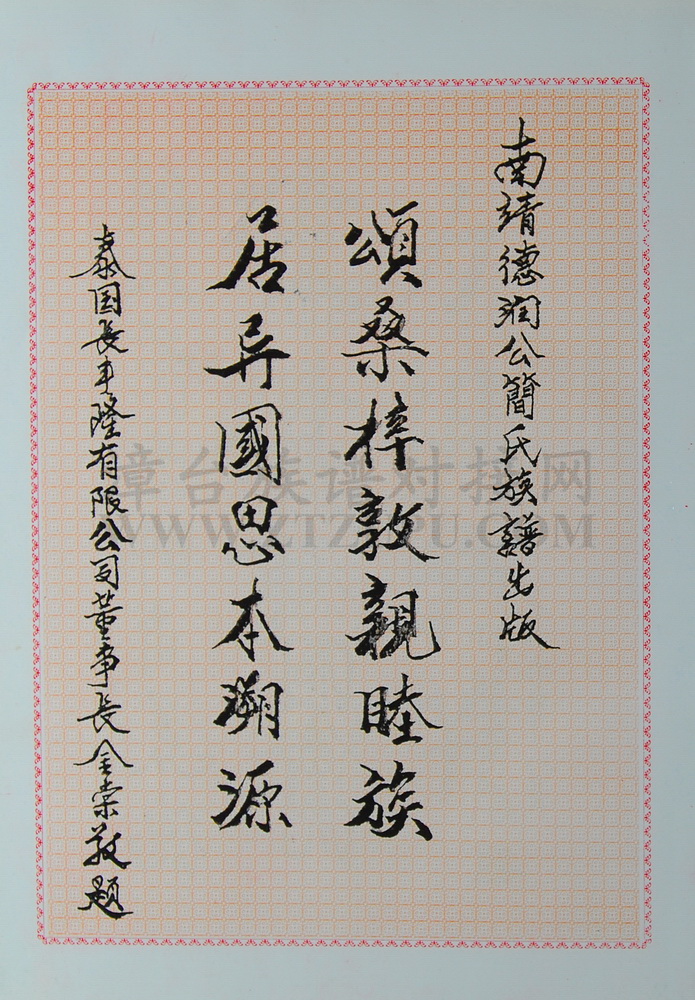 南靖德润公簡氏族譜出版
頌桑梓敦親睦族
居异國思本溯源
泰国長丰隆有限公司董事長金崇敬題
章台族谱对接网
WWW.ZTZUPU.COM